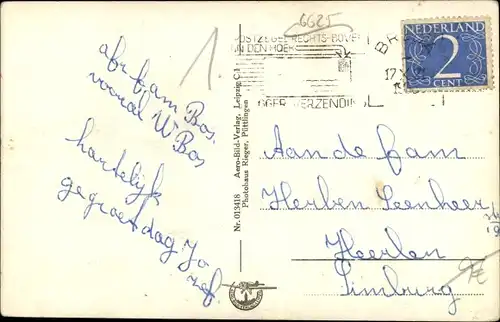 6625
POSTZEGEL RECHTS-BOVEN
IN DEN HOEK
GGER VERZENDING
BR
17
NEDERLAND
2
CENT
1
Bos.
vooral W Bos
hartelijk
gegroet dag Jo
Nr. 013418 Aero-Bild-Verlag, Leipzig C 1
Photohaus Rieger, Püttlingen
Aan de fam
Herben Leenheer
Heerlen
Limburg